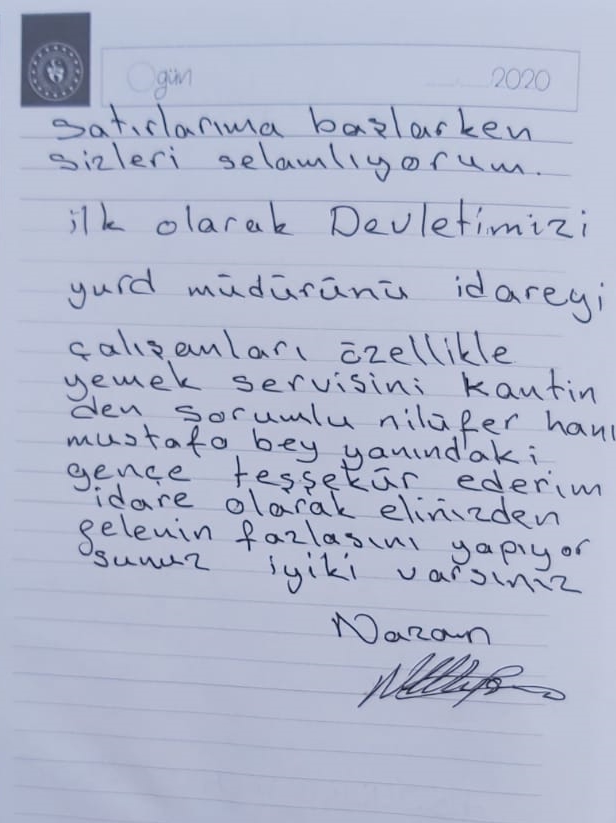 Ogün 2020
satırlarıma başlarken
sizleri selamlıyorum.
ilk olarak Devletimizi
yurd müdürünü idareyi
çalışanları özellikle
yemek servisini kantin
den sorumlu nilüfer hanı
mustafa bey yanındaki
gençe teşşekür ederim
idare olarak elinizden
gelenin fazlasını yapıyor
sunuz iyiki varsınız